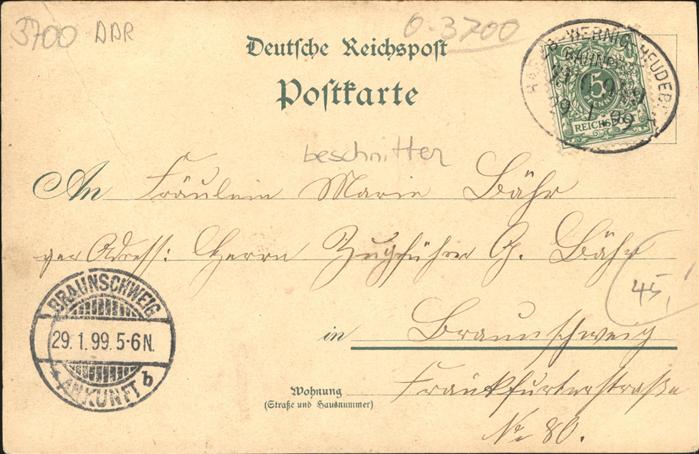 3700 DDR
0-3700
Deutsche Reichspost
Postkarte
5
REICHSPOST
beschnitten
An Fräulein Marie Bähr
per Adress: Herrn Zugführer G. Bähr
45,
in Braunschweig
Wohnung
(Straße und Hausnummer)
Frankfurterstraße
No 80.
BRAUNSCHWEIG
29.1.99.5-6N.
ANKUNFT b